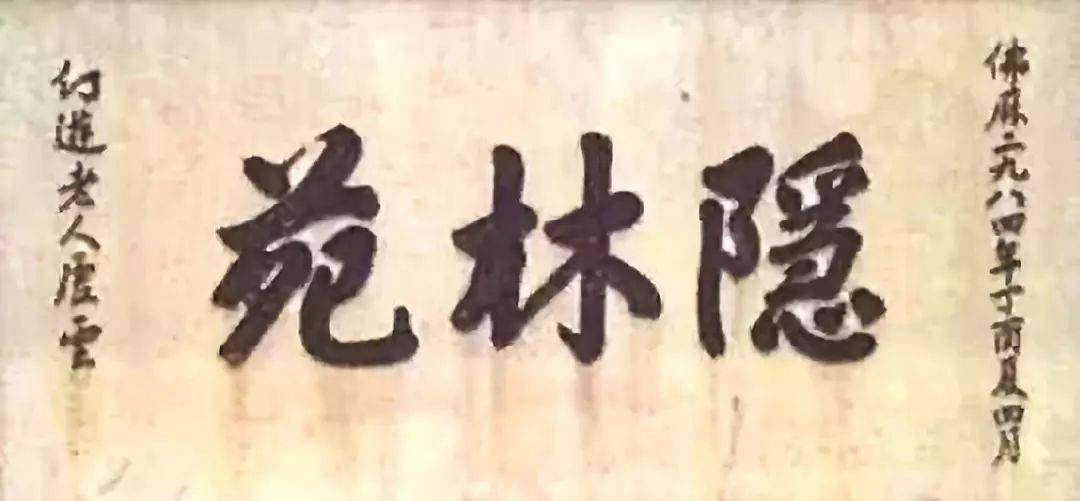 佛曆二九八四年丁酉夏四月
隱林苑
幻遊老人虛雲